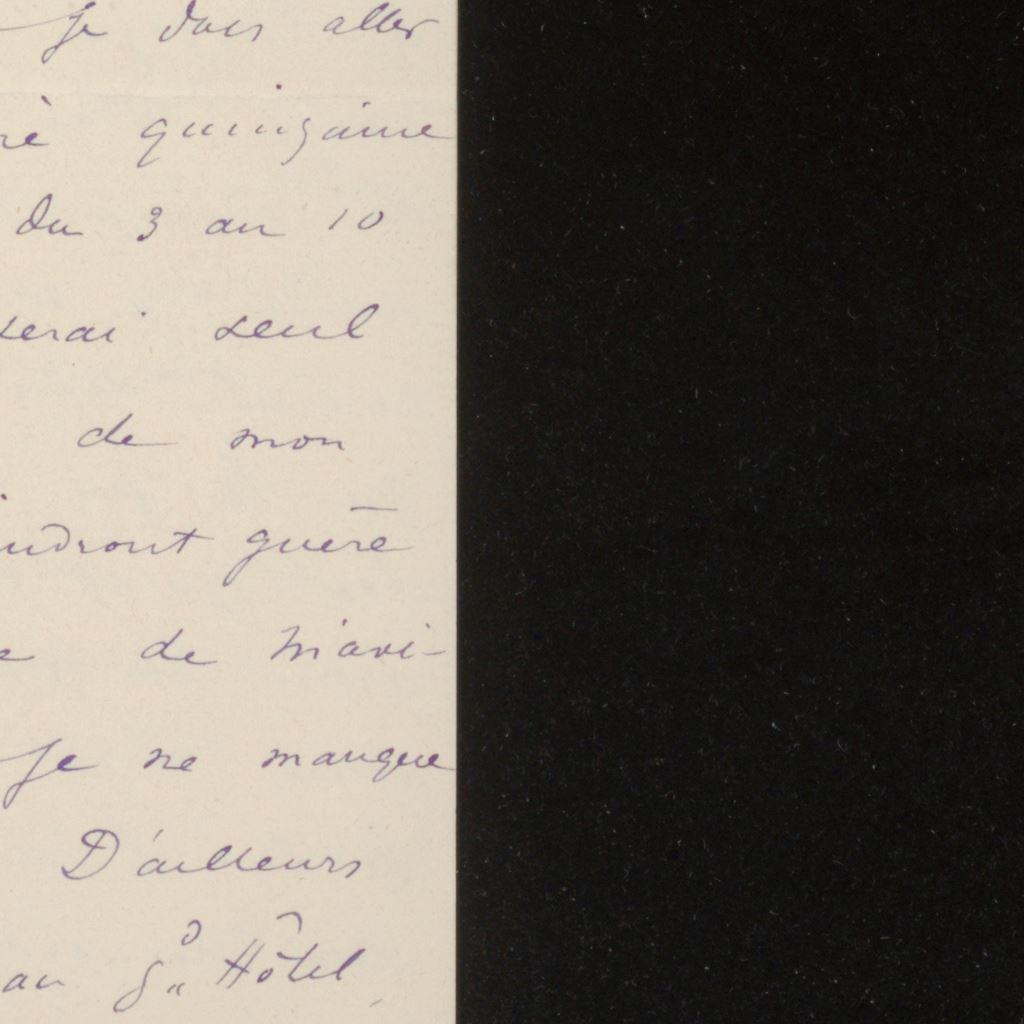 Je dois aller
rè quinzaine
du 3 au 10
serai seul
de mon
indront guère
de m'avi-
Je ne manque
D'ailleurs
au Gd Hôtel